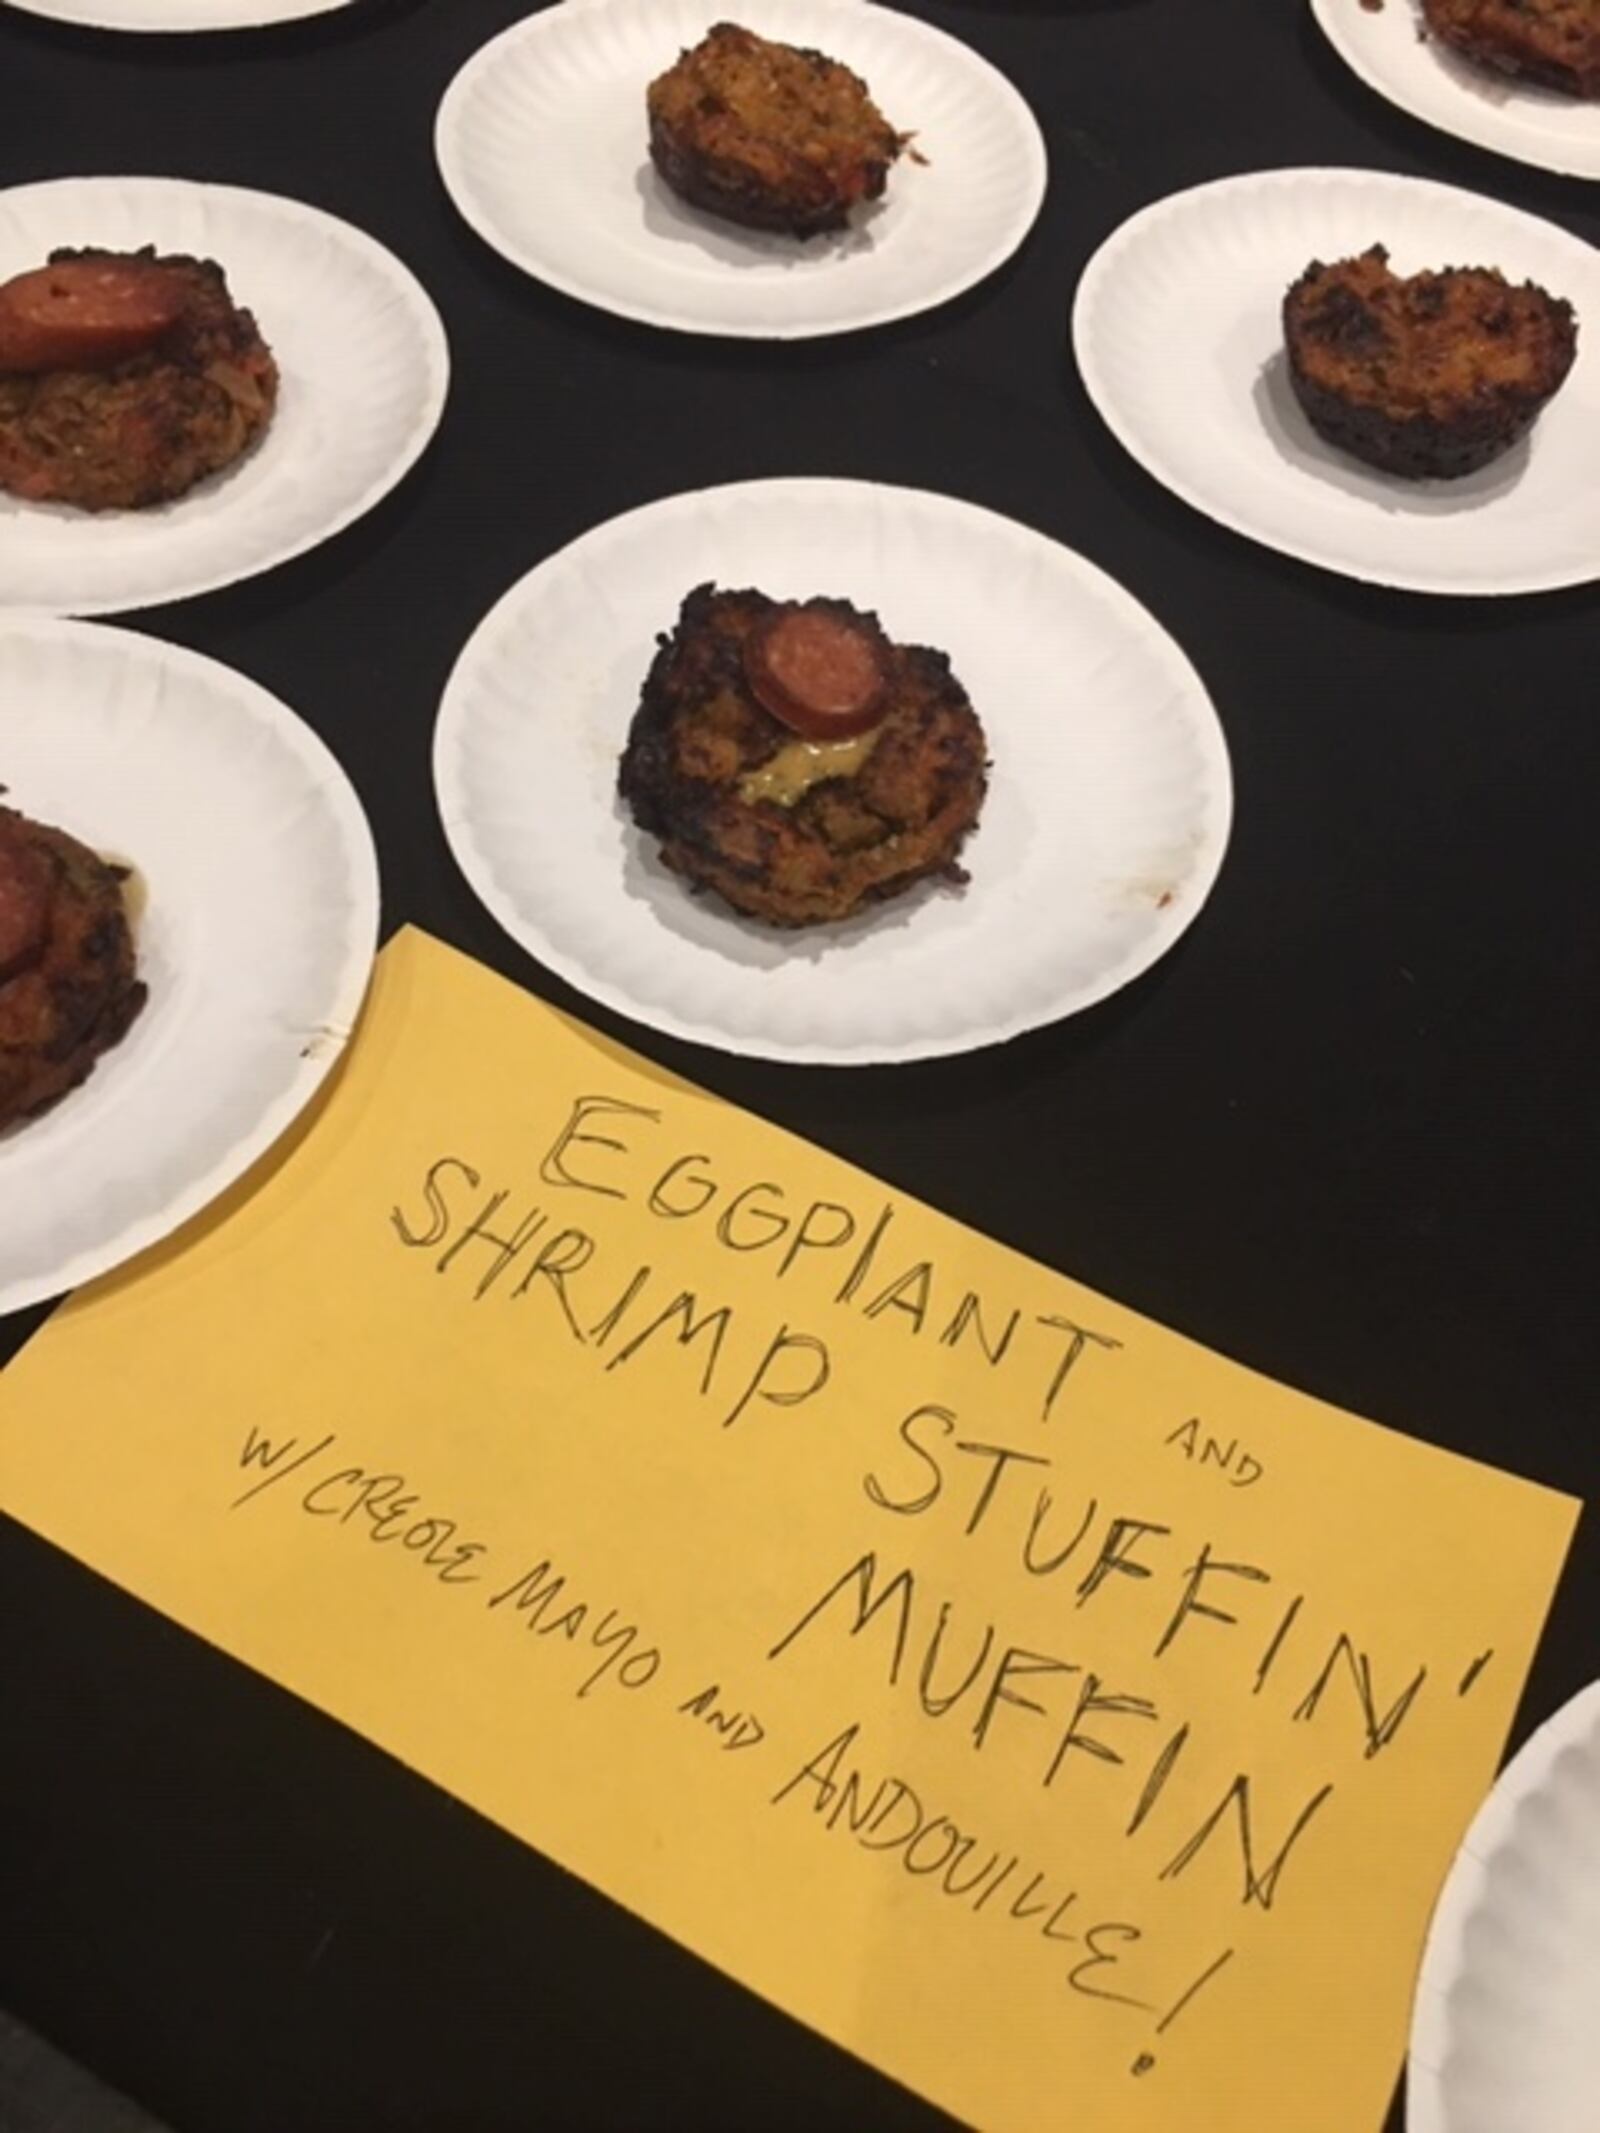 EGGPlANT AND
SHRIMP STUFFIN'
MUFFIN
W/ CREOLE MAYO AND ANDOUILLE!